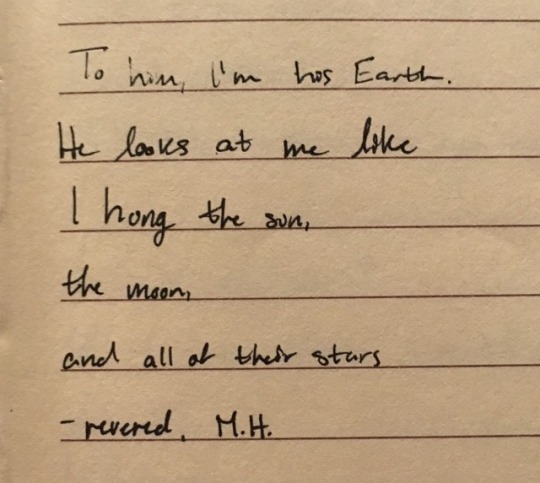 To him, I'm his Earth.
He looks at me like
I hong the sun,
the moon,
and all of their stars
- revered, M.H.